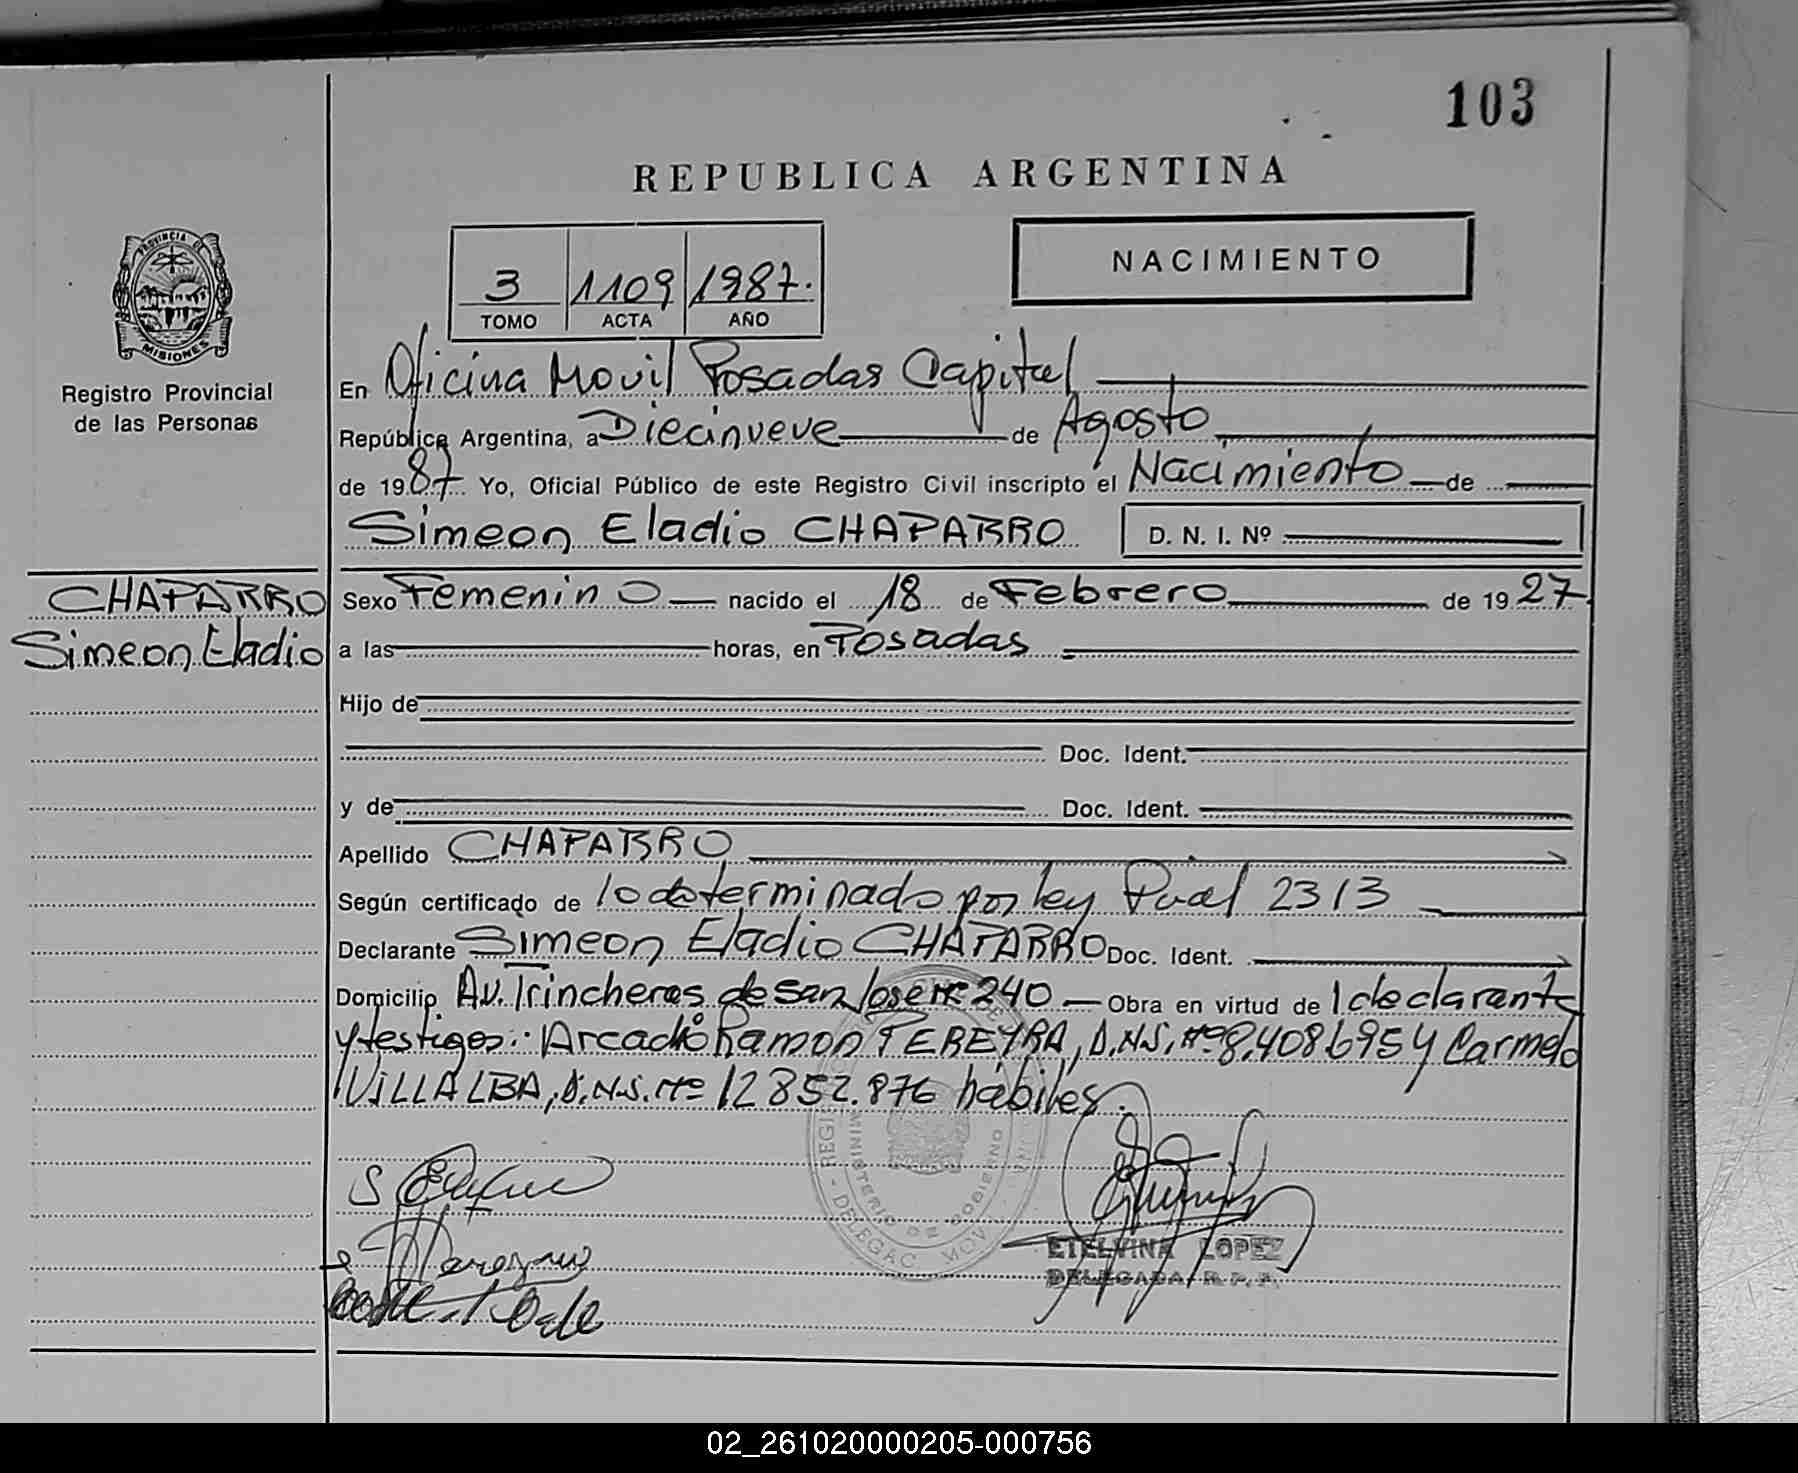 103
REPUBLICA ARGENTINA
PROVINCIA DE
MISIONES
Registro Provincial
de las Personas
3 1109 1987.
TOMO ACTA AÑO
NACIMIENTO
En Oficina Movil Posadas Capital
República Argentina, a Diecinueve de Agosto
de 1987 Yo, Oficial Público de este Registro Civil inscripto el Nacimiento de
Simeon Eladio CHAPARRO D. N. I. Nº
CHAPARRO
Simeon Eladio
Sexo Femenino nacido el 18 de Febrero de 1927
a las horas, en Posadas
Hijo de
Doc. Ident.
y de Doc. Ident.
Apellido CHAPARRO
Según certificado de lo determinado por ley Pcial 2313
Declarante Simeon Eladio CHAPARRO Doc. Ident.
Domicilio Av. Trincheras de San Jose Nº 240 Obra en virtud de l declarante
y testigos: Arcadio Ramon PEREYRA, D.N.I. Nº 8.408.695 y Carmelo
VILLALBA, D.N.I. Nº 12852.876 hábiles.
MINISTERIO DE GOBIERNO
ETELVINA LOPEZ
DELEGADA R. P. P.
02_261020000205-000756